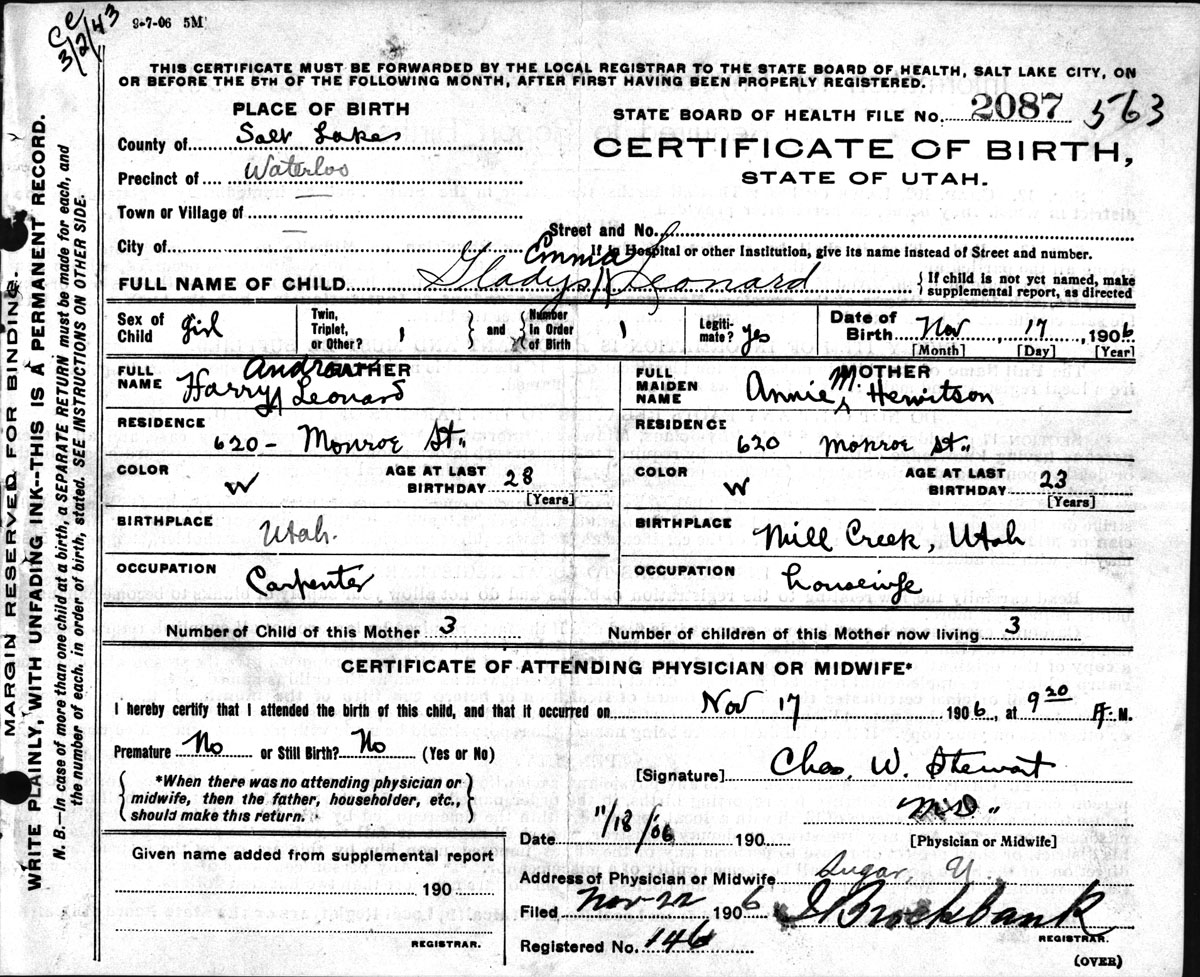 CC
3/2/43
9-7-06 5M
THIS CERTIFICATE MUST BE FORWARDED BY THE LOCAL REGISTRAR TO THE STATE BOARD OF HEALTH, SALT LAKE CITY, ON
OR BEFORE THE 5TH OF THE FOLLOWING MONTH, AFTER FIRST HAVING BEEN PROPERLY REGISTERED.
MARGIN RESERVED FOR BINDING.
WRITE PLAINLY, WITH UNFADING INK--THIS IS A PERMANENT RECORD.
N. B.—In case of more than one child at a birth, a SEPARATE RETURN must be made for each, and
the number of each, in order of birth, stated. SEE INSTRUCTIONS ON OTHER SIDE.
PLACE OF BIRTH
County of Salt Lake
Precinct of Waterloo
Town or Village of —
City of —
STATE BOARD OF HEALTH FILE No. 2087 563
CERTIFICATE OF BIRTH,
STATE OF UTAH.
Street and No.
If in Hospital or other Institution, give its name instead of Street and number.
Emma
FULL NAME OF CHILD Gladys Leonard { If child is not yet named, make supplemental report, as directed
Sex of Child girl Twin, Triplet, or Other? 1 } and { Number in Order of Birth 1 Legitimate? yes Date of Birth Nov 17, 1906
[Month] [Day] [Year]
FATHER
Andrew
FULL NAME Harry Leonard
RESIDENCE
620 - Monroe St.
COLOR W AGE AT LAST BIRTHDAY 28
[Years]
BIRTHPLACE
Utah.
OCCUPATION
Carpenter
MOTHER
FULL MAIDEN NAME Annie M. Hewitson
RESIDENCE
620 Monroe St.
COLOR W AGE AT LAST BIRTHDAY 23
[Years]
BIRTHPLACE
Mill Creek, Utah
OCCUPATION
housewife
Number of Child of this Mother 3 Number of children of this Mother now living 3
CERTIFICATE OF ATTENDING PHYSICIAN OR MIDWIFE*
I hereby certify that I attended the birth of this child, and that it occurred on Nov 17 1906, at 9 20 A. M.
Premature No or Still Birth? No (Yes or No)
{ *When there was no attending physician or
midwife, then the father, householder, etc.,
should make this return. }
[Signature] Chas. W. Stewart
M.D.
[Physician or Midwife]
Date 11/18/06 190
Address of Physician or Midwife Sugar, U
Filed Nov-22 1906 Brockbank
REGISTRAR.
Registered No. 146
(OVER)
Given name added from supplemental report
190
REGISTRAR.